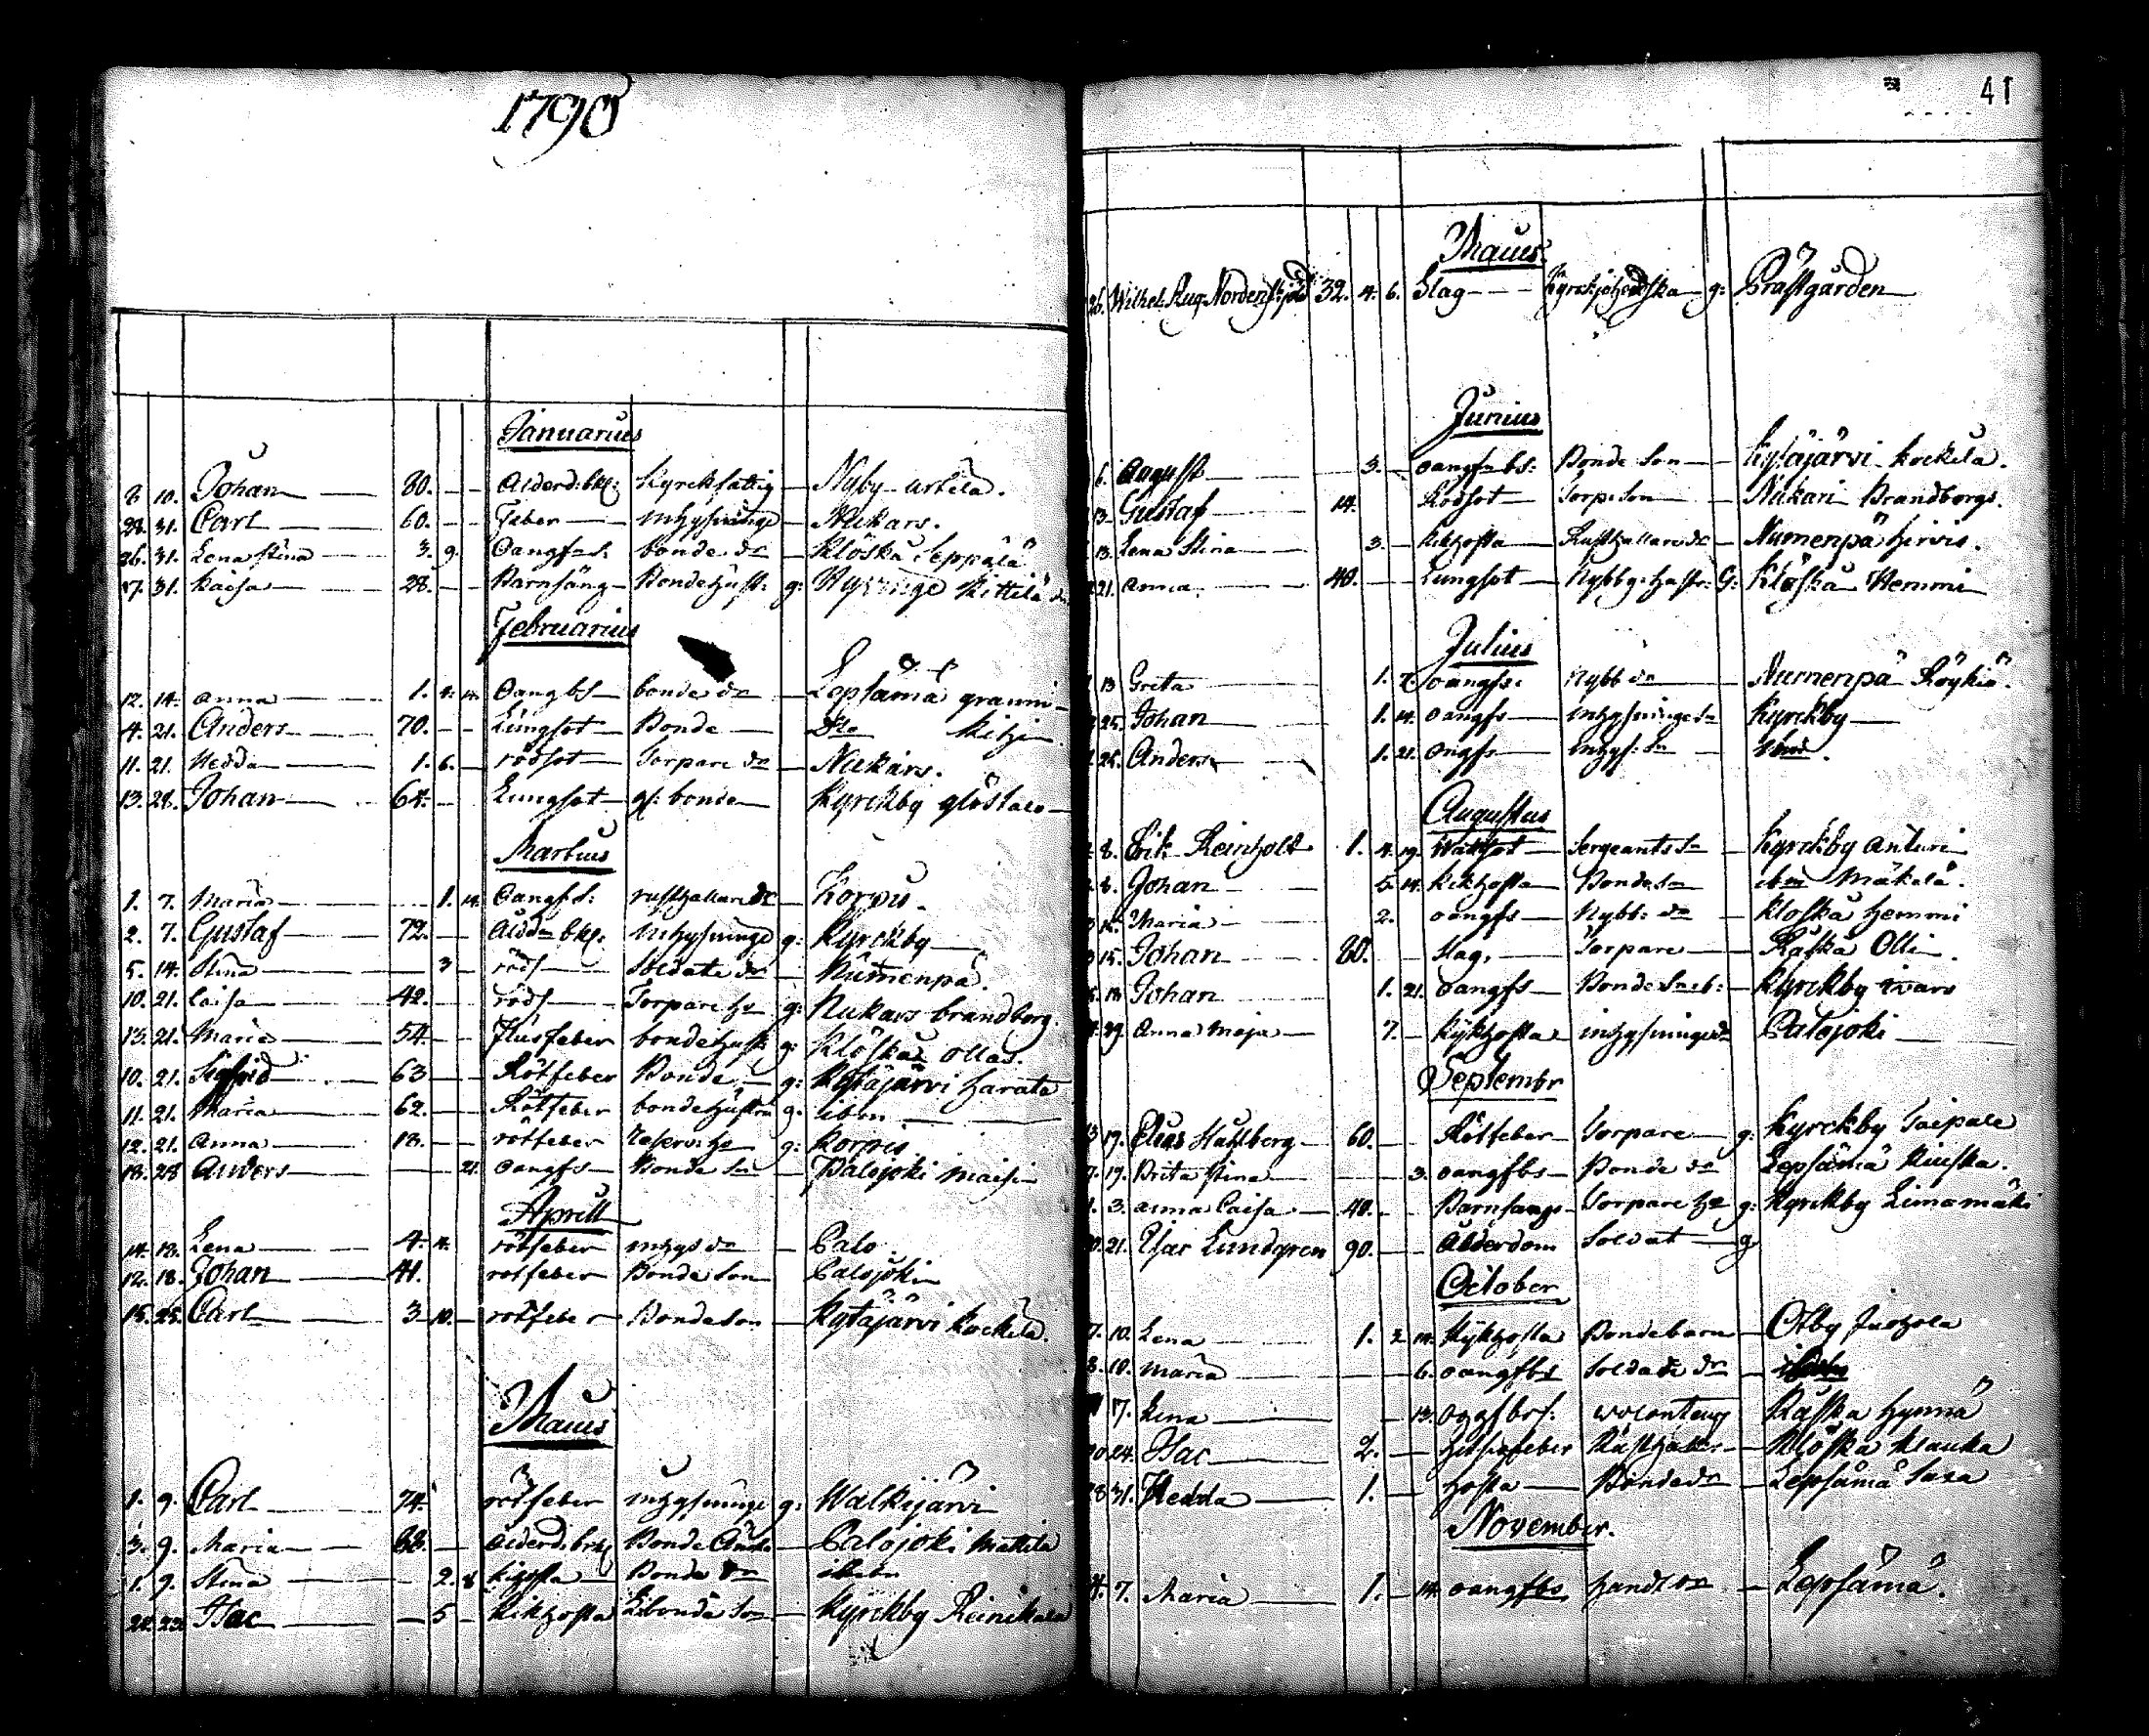 1798
Januarius
8 10. Johan 80. Ålderd: bkl: Kyrckfattig Nyby Urkila.
28. 31. Carl 60. Feber Inhysninge Nukars.
26. 31. Lena Stina 3. 9. Oangf S. bonde dr Klöskå Seppälä
17. 31. Kaisa 28. Barnsäng Bondehust: g: Hyvinge Kittilä
Februarius
12. 14. Anna 1. 4. 14. Oangbs bonde dr Lepsämä granni
4. 21. Anders 70. Lungsot Bonde Dto Kihi
11. 21. Hedda 1. 6. rödsot Torpare dr Nukars.
13. 28. Johan 64. Lungsot gl: bonde Kyrckby
Martius
1. 7. Maria 1. 14. Oangf S: rusthållare dr Korpis.
2. 7. Gustaf 72. Åldd bkl. Inhysninge g: Kyrckby
5. 14. Stina 3 röds Soldate dr Numenpä.
10. 21. Caisa 42. röds Torpare h g: Nukars brandborg.
13. 21. Maria 54. Flussfeber bondehust g: Klöskå Ollas.
10. 21. Sigfrid 63 Rötfeber Bonde g: Kytäjärvi Harata
11. 21. Maria 62. Rötfeber bondehustru g. ibm
12. 21. Anna 13. rötfeber g: Korpis
18. 28 Anders 21. oangfs Bonde Sn Palojoki Maisi
Aprill
14. 18. Lena 4. 4. rötfeber inhys dr Palo
12. 18. Johan 41. rötfeber Bonde Son Palojoki
15. 25. Carl 3 10. rötfeber Bonde Son Kytäjärvi Kockila.
Maius
1. 9. Carl 74. rötfeber inhysninge g: Walkijärvi
3. 9. Maria 68. Ålderd. brkl Bonde Änka Palojoki Mattila
1. 9. Stina 2. 8 kighosta Bonde dr ibidm
22. 23. Isac 5 Kikhosta Bonde Son Kyrckby Reinikala
41
Maius.
26. Wilhel: Aug. Nordenskjöld 32. 4. 6. Slag g: Prästgården
Junius
6. August 3. oangf bs: Bonde Son Kytäjärvi Kockila.
13. Gustaf 14. Rödsot Torp: Son Nukari Brandborgs.
13. Lena Stina 3. Kikhosta Rusthållare dr Numenpä Hirvis.
21. Anna 40. Lungsot Nybbg: hustr: g: Klöskå Hemmi
Julius
13. Greta 1. oangfs: Nybb dr Numenpä Röykiä.
25. Johan 1. 14. oangfs inhysninge Sn Kyrckby
25. Anders 1. 21. ongfs Inhys: Sn ibid.
Augustus
8. Erik Reinholt 1. 4. 19. Wattsot Sergeants Sn Kyrckby Anturi
8. Johan 5. 14. Kikhosta Bonde Sn ibm Mäkelä.
Maria 2. oangfs Nybb: dr Kloskå Hemmi
15. Johan 80. Slag. Torpare Räfskå Olli.
18. Johan 1. 21. oangfs Bonde Kyrckby Iwars
29. Anna Maja 7. Kykhosta inhysninge dr Palojoki
Septembr
17. Elias Stahlberg 60. Rötfeber Torpare g: Kyrckby Taipale
17. 19. Brita Stina 3. oangfbs Bonde dr Lepsämä Kuiska.
3. Anna Caisa 40. Barnsängs Torpare h g: Kyrckby Limamäki
21. Isac Lundgren 90. Ålderdom Soldat g
October
7. 10. Lena 1. 2 14. Kykhosta Bondebarn Otby Juohola
8. 10. Maria 6. oangfbs Soldate dr
7. Lena 13. oggfbrs: Räfska Hynnä
20. 24. Isac 2. Klöska Klauka
28 31. Hedda 1. Hosta Bonde dr Lepsämä
November.
4. 7. Maria 1. 14. oangfbs Lepsämä.